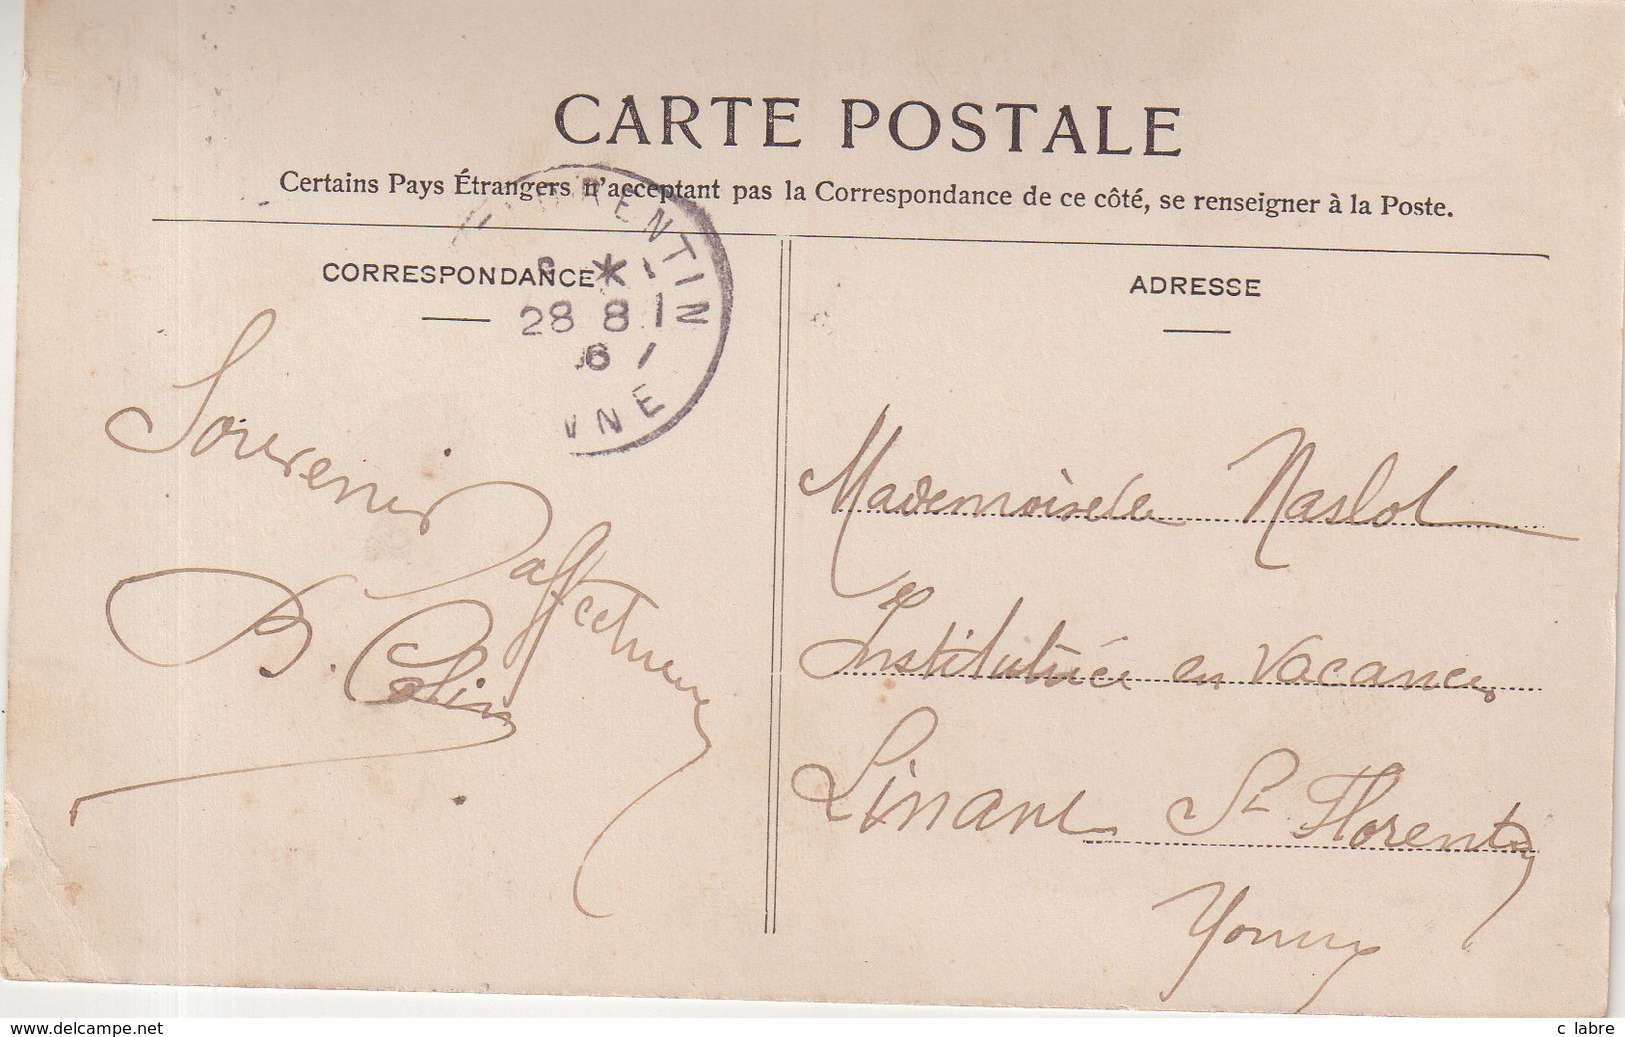 CARTE POSTALE
Certains Pays Étrangers n'acceptant pas la Correspondance de ce côté, se renseigner à la Poste.
CORRESPONDANCE
Souvenir
affectueux
Colin
RENTIN
28 8
YONNE
ADRESSE
Mademoiselle Naslot
Institutrice en vacances
St Florentin
Yonne
www.delcampe.net
c labre